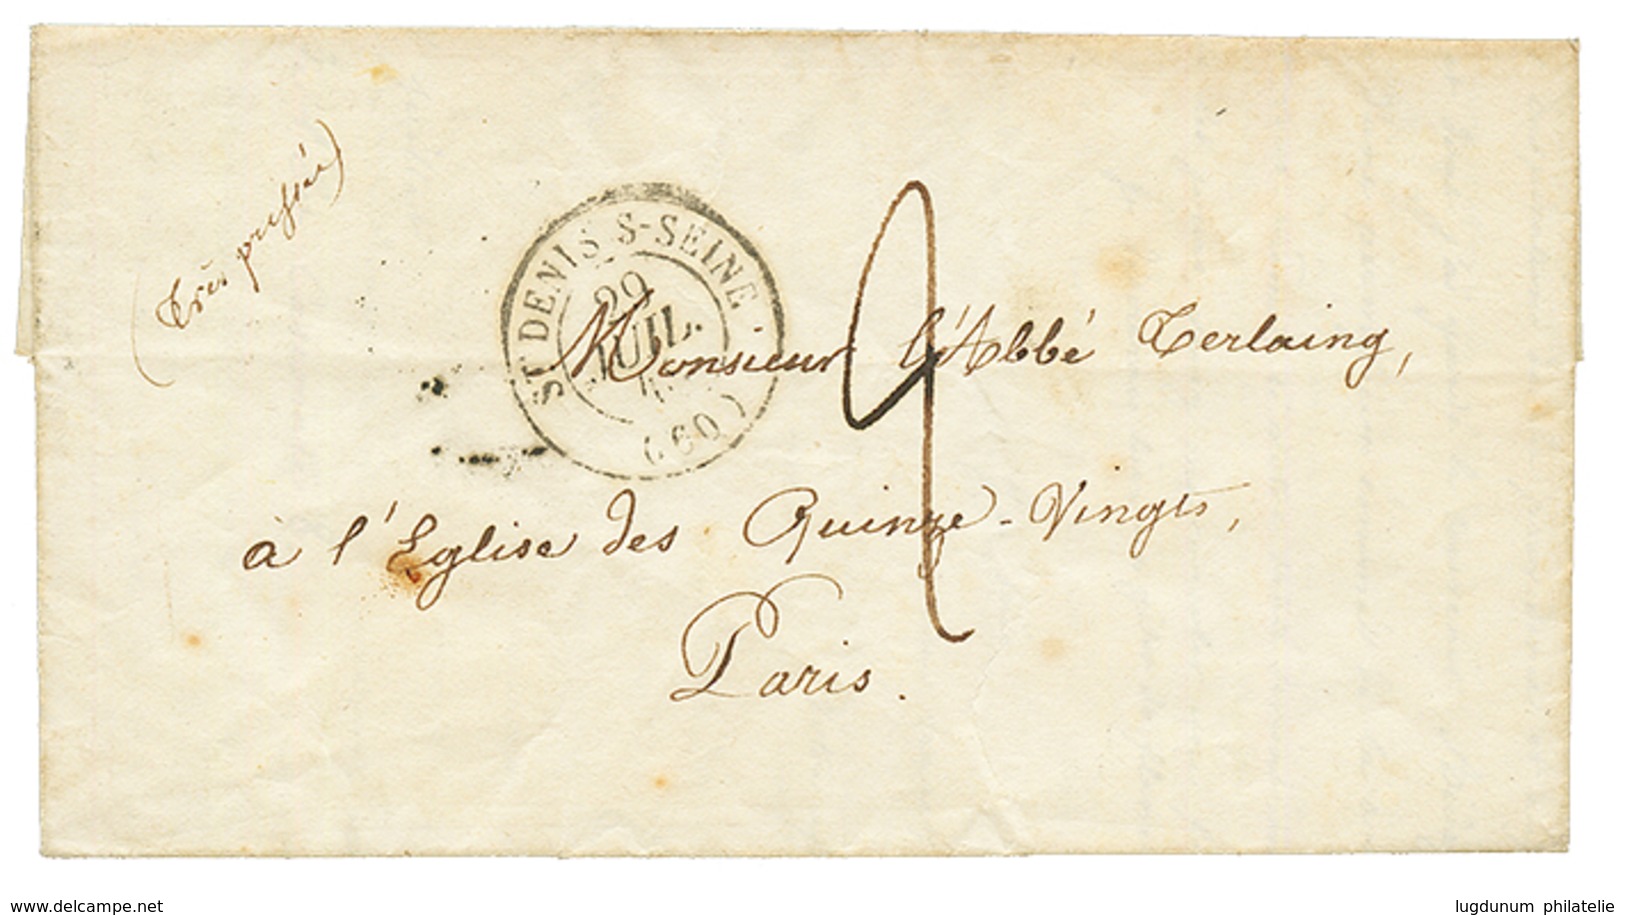 (très pressée)
ST DENIS S-SEINE
29
JUIL.
(60)
Monsieur l'Abbé Terlaing,
à l'Eglise des Quinze-Vingts,
Paris.
delcampe.net
lugdunum philatelie